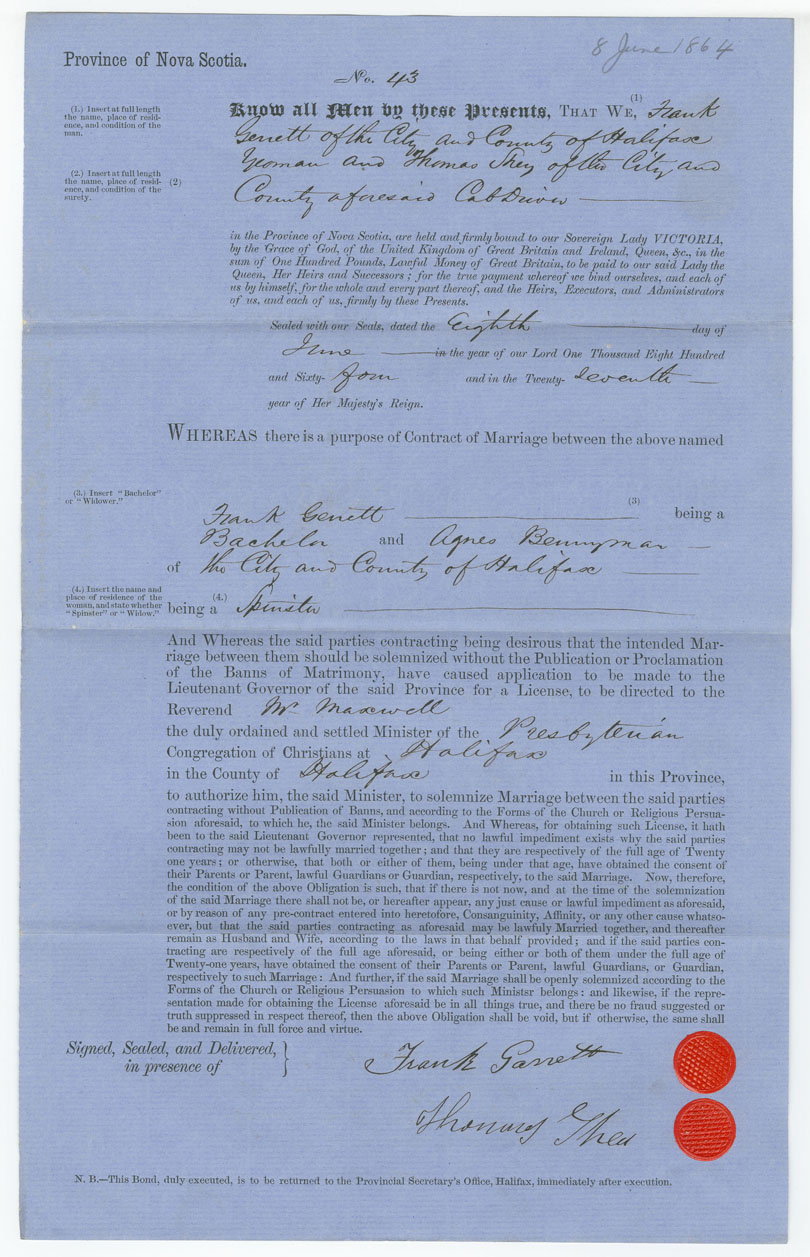 8 June 1864
Province of Nova Scotia.
No. 43
(1.) Insert at full length
the name, place of resid-
ence, and condition of the
man.
(2.) Insert at full length
the name, place of resid-
ence, and condition of the
surety.
(1)
Know all Men by these Presents, THAT WE, Frank
Gerrett of the City and County of Halifax
(2)
Yeoman and Thomas Shey of the City and
County aforesaid Cab Driver
in the Province of Nova Scotia, are held and firmly bound to our Sovereign Lady VICTORIA,
by the Grace of God, of the United Kingdom of Great Britain and Ireland, Queen, &c., in the
sum of One Hundred Pounds, Lawful Money of Great Britain, to be paid to our said Lady the
Queen, Her Heirs and Successors; for the true payment whereof we bind ourselves, and each of
us by himself, for the whole and every part thereof, and the Heirs, Executors, and Administrators
of us, and each of us, firmly by these Presents.
Sealed with our Seals, dated the Eighth day of
June in the year of our Lord One Thousand Eight Hundred
and Sixty- four and in the Twenty- seventh
year of Her Majesty's Reign.
WHEREAS there is a purpose of Contract of Marriage between the above named
(3.) Insert "Bachelor"
or "Widower."
(3)
Frank Gerrett being a
Bachelor and Agnes Bennyman
of the City and County of Halifax
(4.) Insert the name and
place of residence of the
woman, and state whether
"Spinster" or "Widow."
(4.)
being a Spinster
And Whereas the said parties contracting being desirous that the intended Mar-
riage between them should be solemnized without the Publication or Proclamation
of the Banns of Matrimony, have caused application to be made to the
Lieutenant Governor of the said Province for a License, to be directed to the
Reverend Mr Maxwell
the duly ordained and settled Minister of the Presbyterian
Congregation of Christians at Halifax
in the County of Halifax in this Province,
to authorize him, the said Minister, to solemnize Marriage between the said parties
contracting without Publication of Banns, and according to the Forms of the Church or Religious Persua-
sion aforesaid, to which he, the said Minister belongs. And Whereas, for obtaining such License, it hath
been to the said Lieutenant Governor represented, that no lawful impediment exists why the said parties
contracting may not be lawfully married together; and that they are respectively of the full age of Twenty
one years; or otherwise, that both or either of them, being under that age, have obtained the consent of
their Parents or Parent, lawful Guardians or Guardian, respectively, to the said Marriage. Now, therefore,
the condition of the above Obligation is such, that if there is not now, and at the time of the solemnization
of the said Marriage there shall not be, or hereafter appear, any just cause or lawful impediment as aforesaid,
or by reason of any pre-contract entered into heretofore, Consanguinity, Affinity, or any other cause whatso-
ever, but that the said parties contracting as aforesaid may be lawfuly Married together, and thereafter
remain as Husband and Wife, according to the laws in that behalf provided; and if the said parties con-
tracting are respectively of the full age aforesaid, or being either or both of them under the full age of
Twenty-one years, have obtained the consent of their Parents or Parent, lawful Guardians, or Guardian,
respectively to such Marriage: And further, if the said Marriage shall be openly solemnized according to the
Forms of the Church or Religious Persuasion to which such Ministsr belongs: and likewise, if the repre-
sentation made for obtaining the License aforesaid be in all things true, and there be no fraud suggested or
truth suppressed in respect thereof, then the above Obligation shall be void, but if otherwise, the same shall
be and remain in full force and virtue.
Signed, Sealed, and Delivered,
in presence of
Frank Garrett
Thomas Shea
N. B.—This Bond, duly executed, is to be returned to the Provincial Secretary's Office, Halifax, immediately after execution.